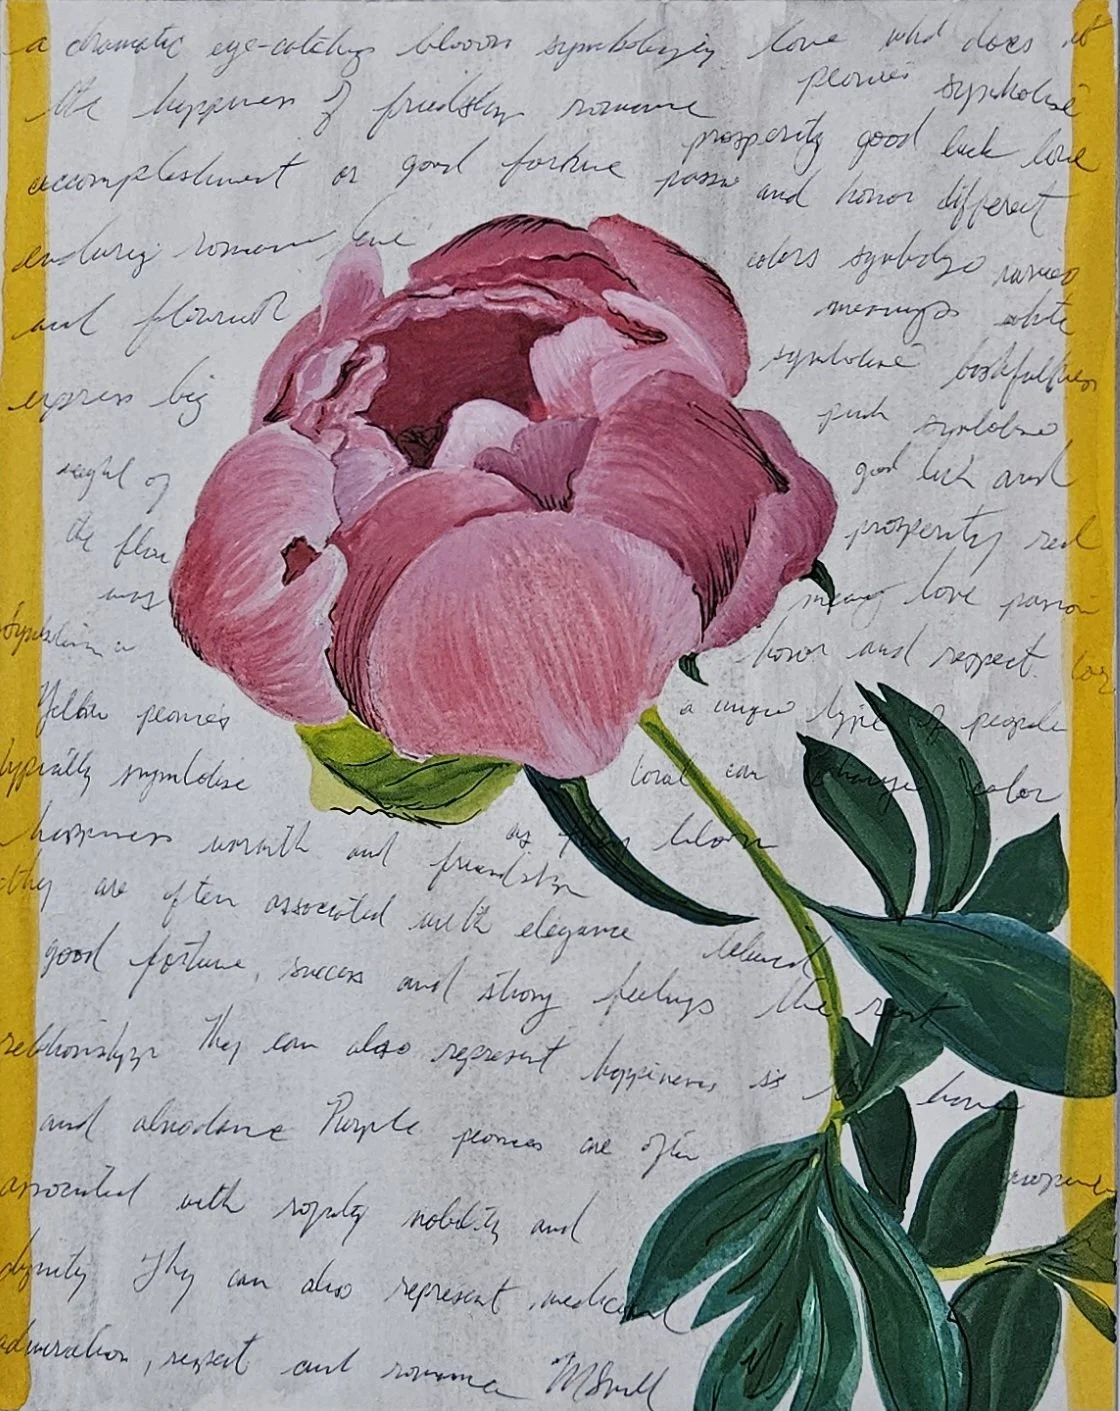 a dramatic eye-catching bloom symbolizing love and does it
the happiness of friendship romance
accomplishment or good fortune
enduring romance love
and
express big
peonies symbolise
prosperity good luck love
and honor different
colors symbolize varied
meanings white
symbolise bashfulness
pink symbolise
good luck and
prosperity red
love passion
honor and respect
a unique type of people
coral can change color
as they bloom
of
the
was
Yellow peonies
typically symbolise
happiness warmth and friendship
they are often associated with elegance
good fortune, success and strong feelings
the
relationships They can also represent happiness
is
and abundance Purple peonies are often
associated with royalty nobility and
dignity They can also represent
admiration, respect and romance